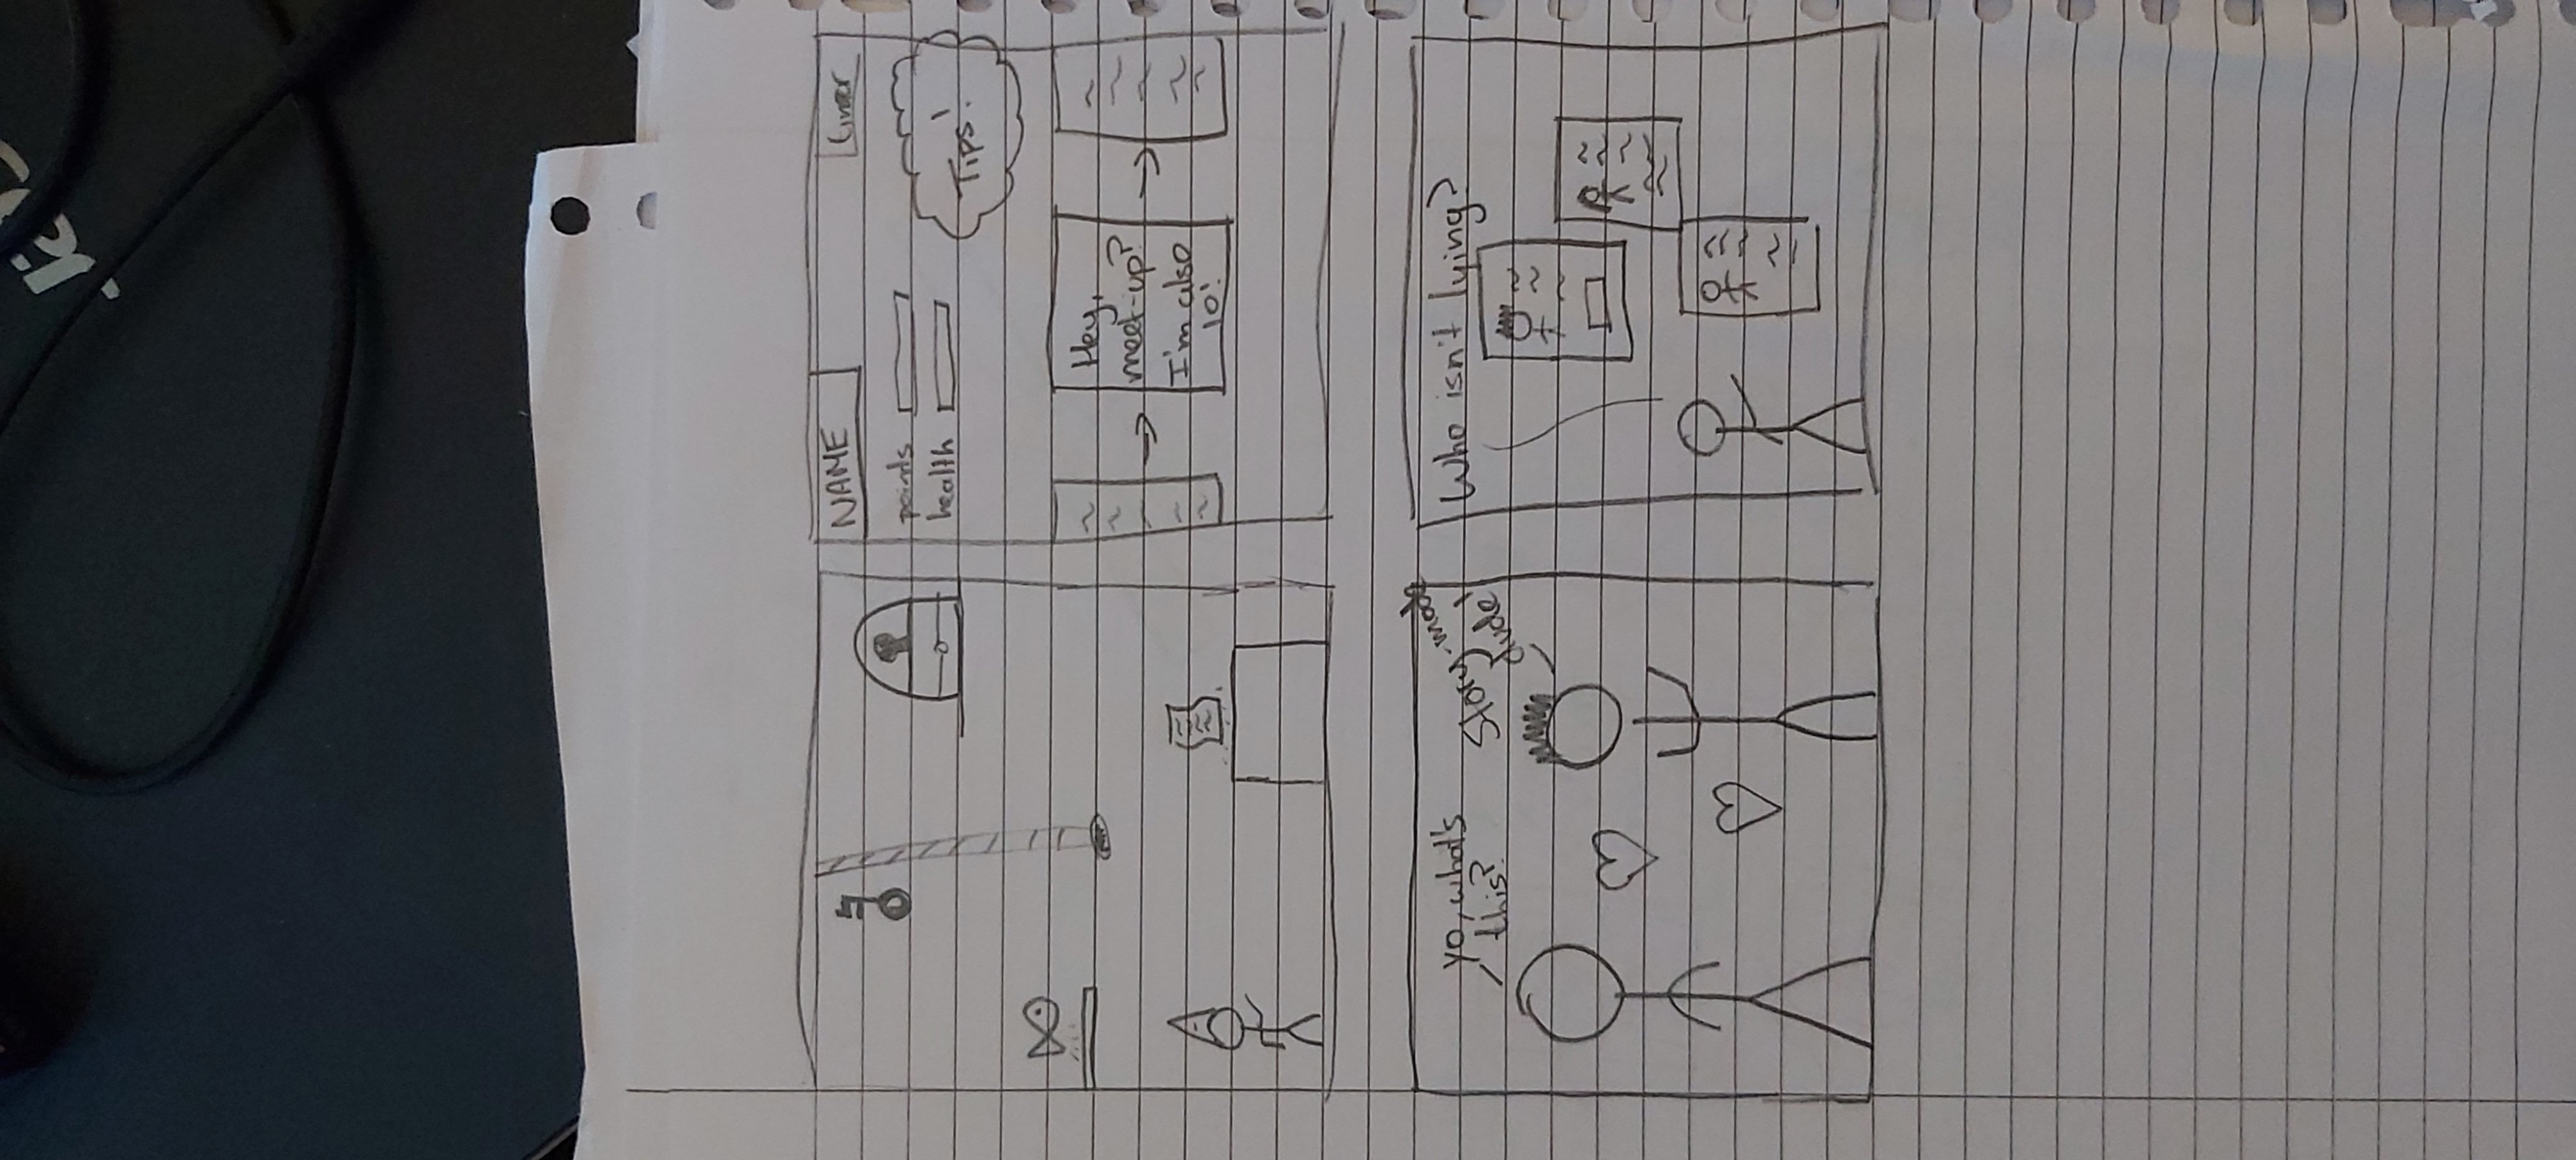 NAME
timer
points
health
Tips!
Hey,
meet-up?
I'm also
10!
yo, what's
this?
Story-mode
dude!
Who isn't lying?